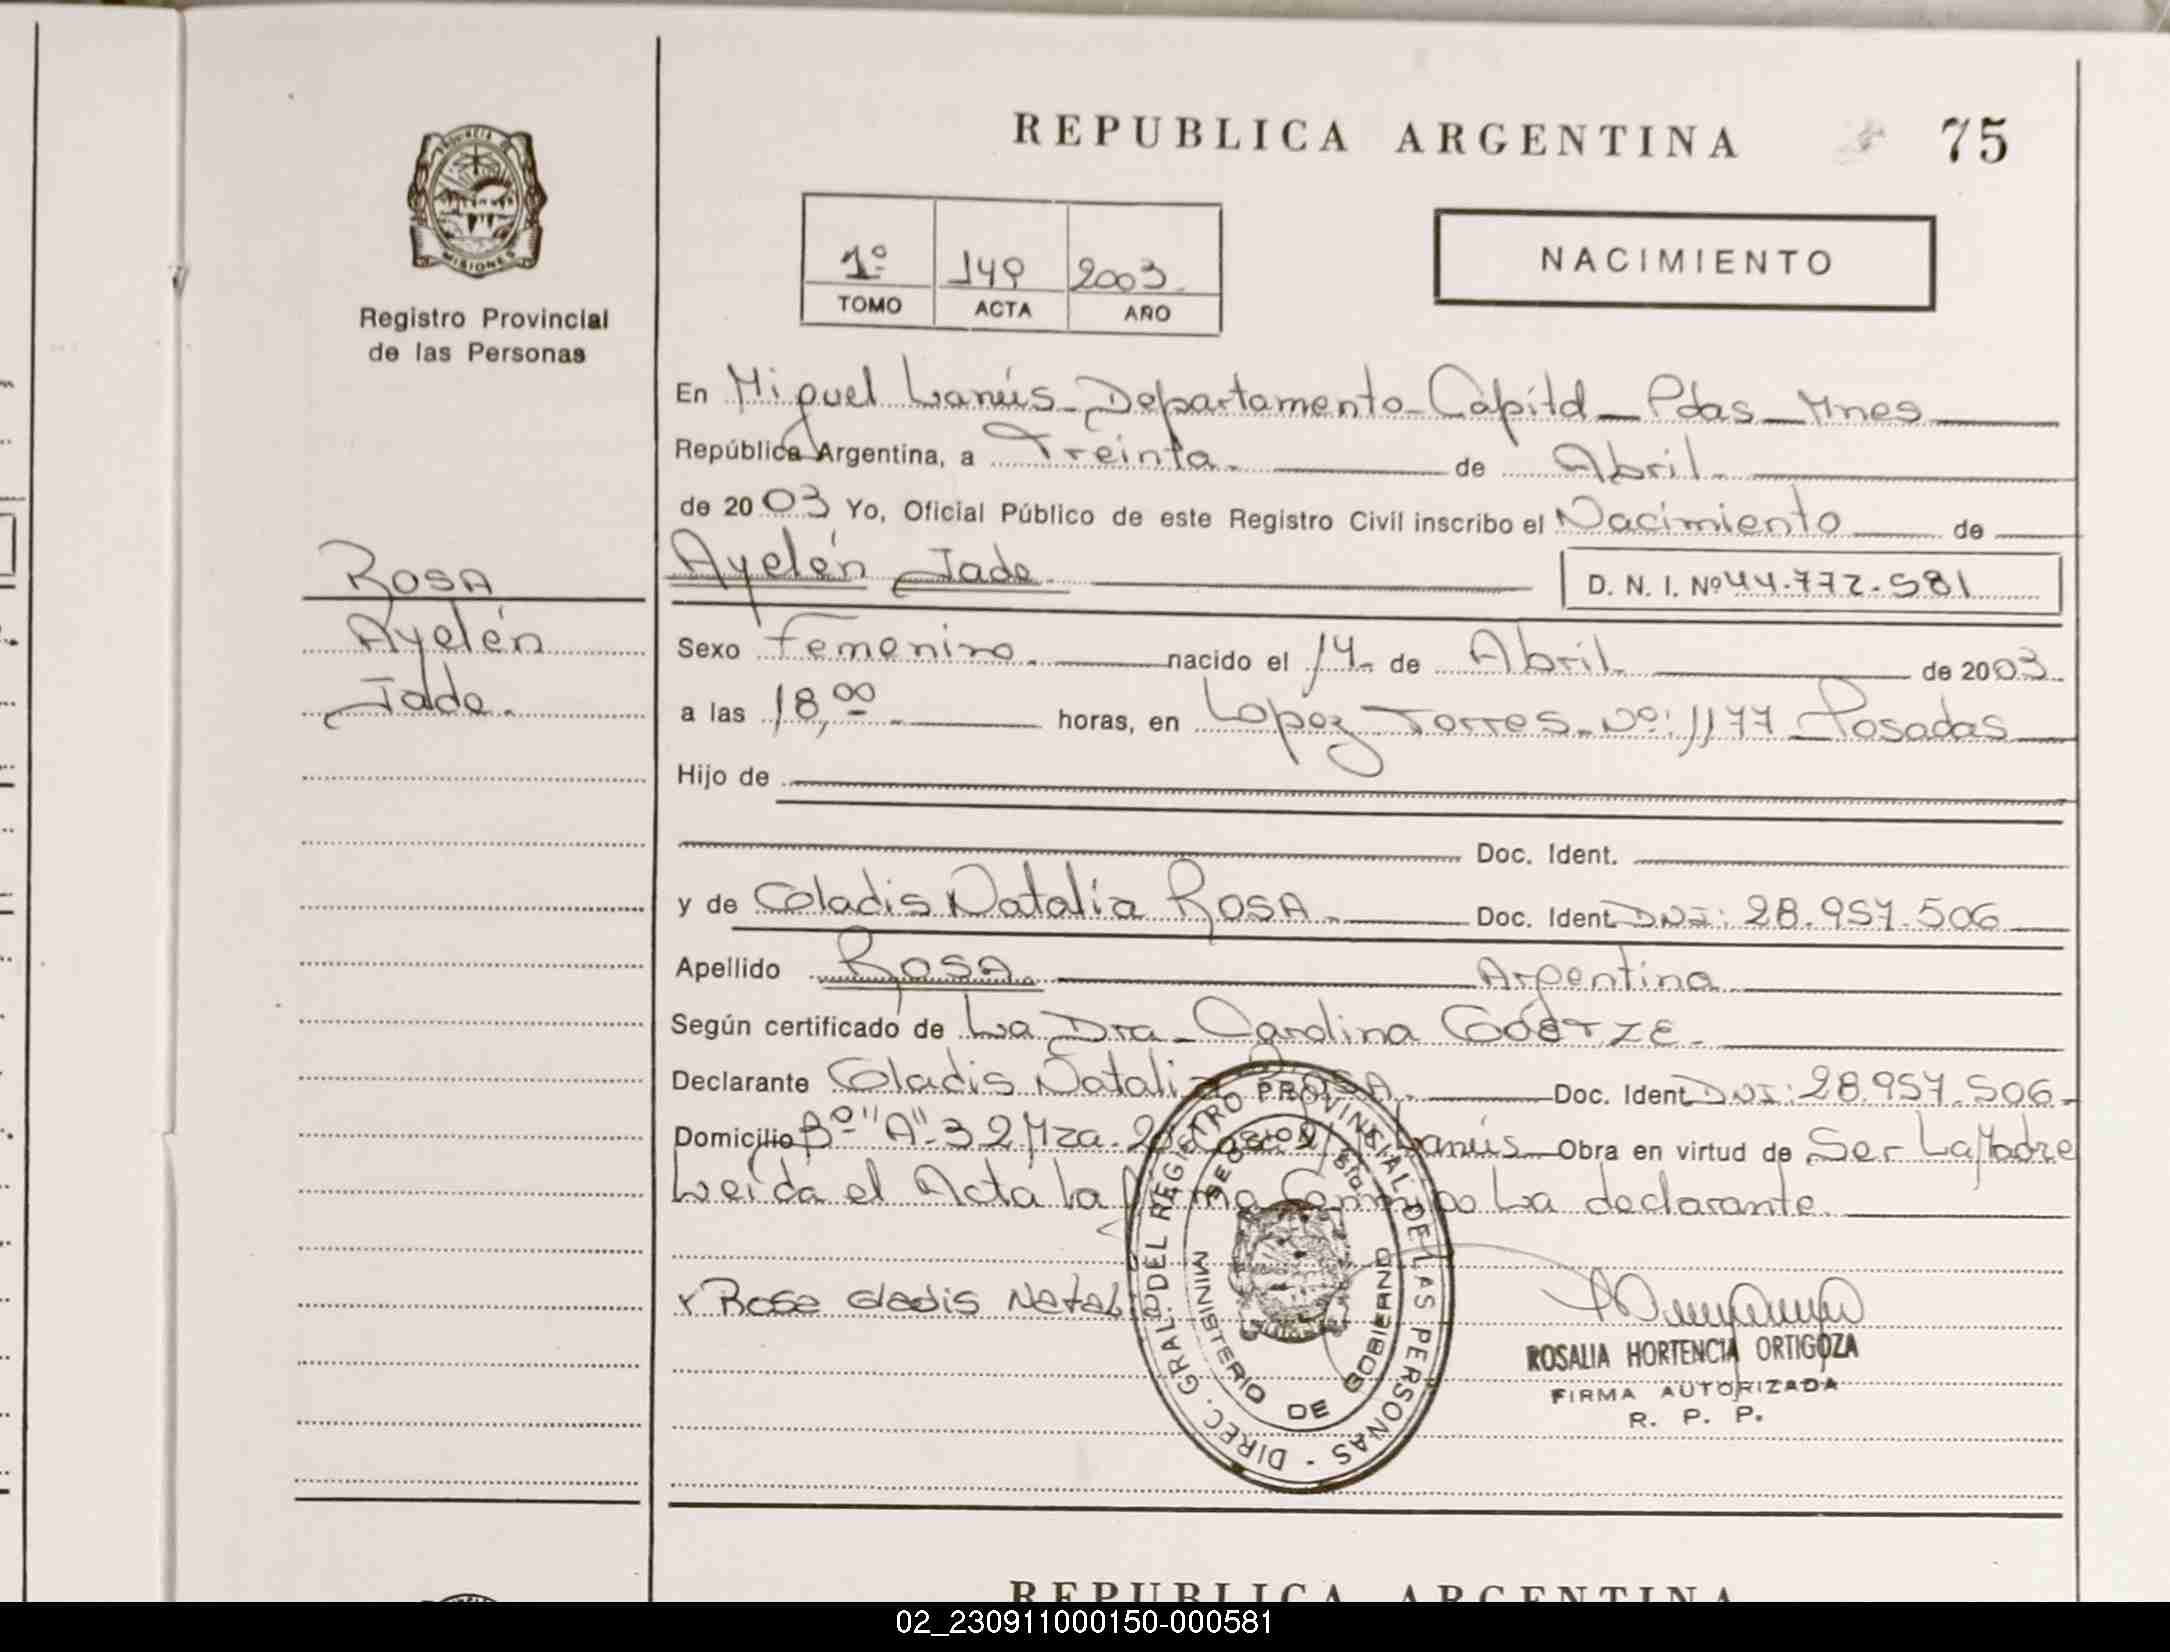 REPUBLICA ARGENTINA 75
PROVINCIA DE
MISIONES
Registro Provincial
de las Personas
1º 149 2003
TOMO ACTA AÑO
NACIMIENTO
En Miguel Lanús - Departamento - Capital - Pdas - Mnes
República Argentina, a Treinta. de Abril.
de 2003 Yo, Oficial Público de este Registro Civil inscribo el Nacimiento de
Ayelén Jade. D. N. I. Nº 44.772.581
ROSA
Ayelén
Jade.
Sexo Femenino. nacido el 14 de Abril. de 2003.
a las 18,00 horas, en Lopez Torres - Nº: 1177 - Posadas
Hijo de
Doc. Ident.
y de Gladis Natalia ROSA. Doc. Ident. DNI: 28.957.506
Apellido ROSA. Argentina
Según certificado de La Dra - Carolina GÓETZE.
Declarante Gladis Natalia ROSA. Doc. Ident. DNI: 28.957.506.
Domicilio Bº "A" - 32 Mza. Lanús Obra en virtud de Ser La Madre
Leida el Acta la firma La declarante.
x Rosa Gladis Natali
DIREC. GRAL. DEL REGISTRO PROVINCIAL DE LAS PERSONAS
MINISTERIO DE GOBIERNO
ROSALIA HORTENCIA ORTIGOZA
FIRMA AUTORIZADA
R. P. P.
REPUBLICA ARGENTINA
02_230911000150-000581